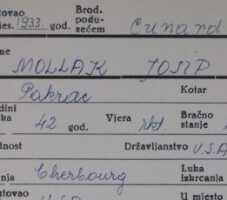 tovao Brod.
jes. 1933. god. podu-
zećem Cunard
me
MOLLAK JOSIP
Pakrac Kotar
dini
ka 42 god. Vjera Rkt Bračno
stanje
dnost Državljanstvo U.S.A
nja Cherbourg Luka
iskrcanja
utovao U mjesto